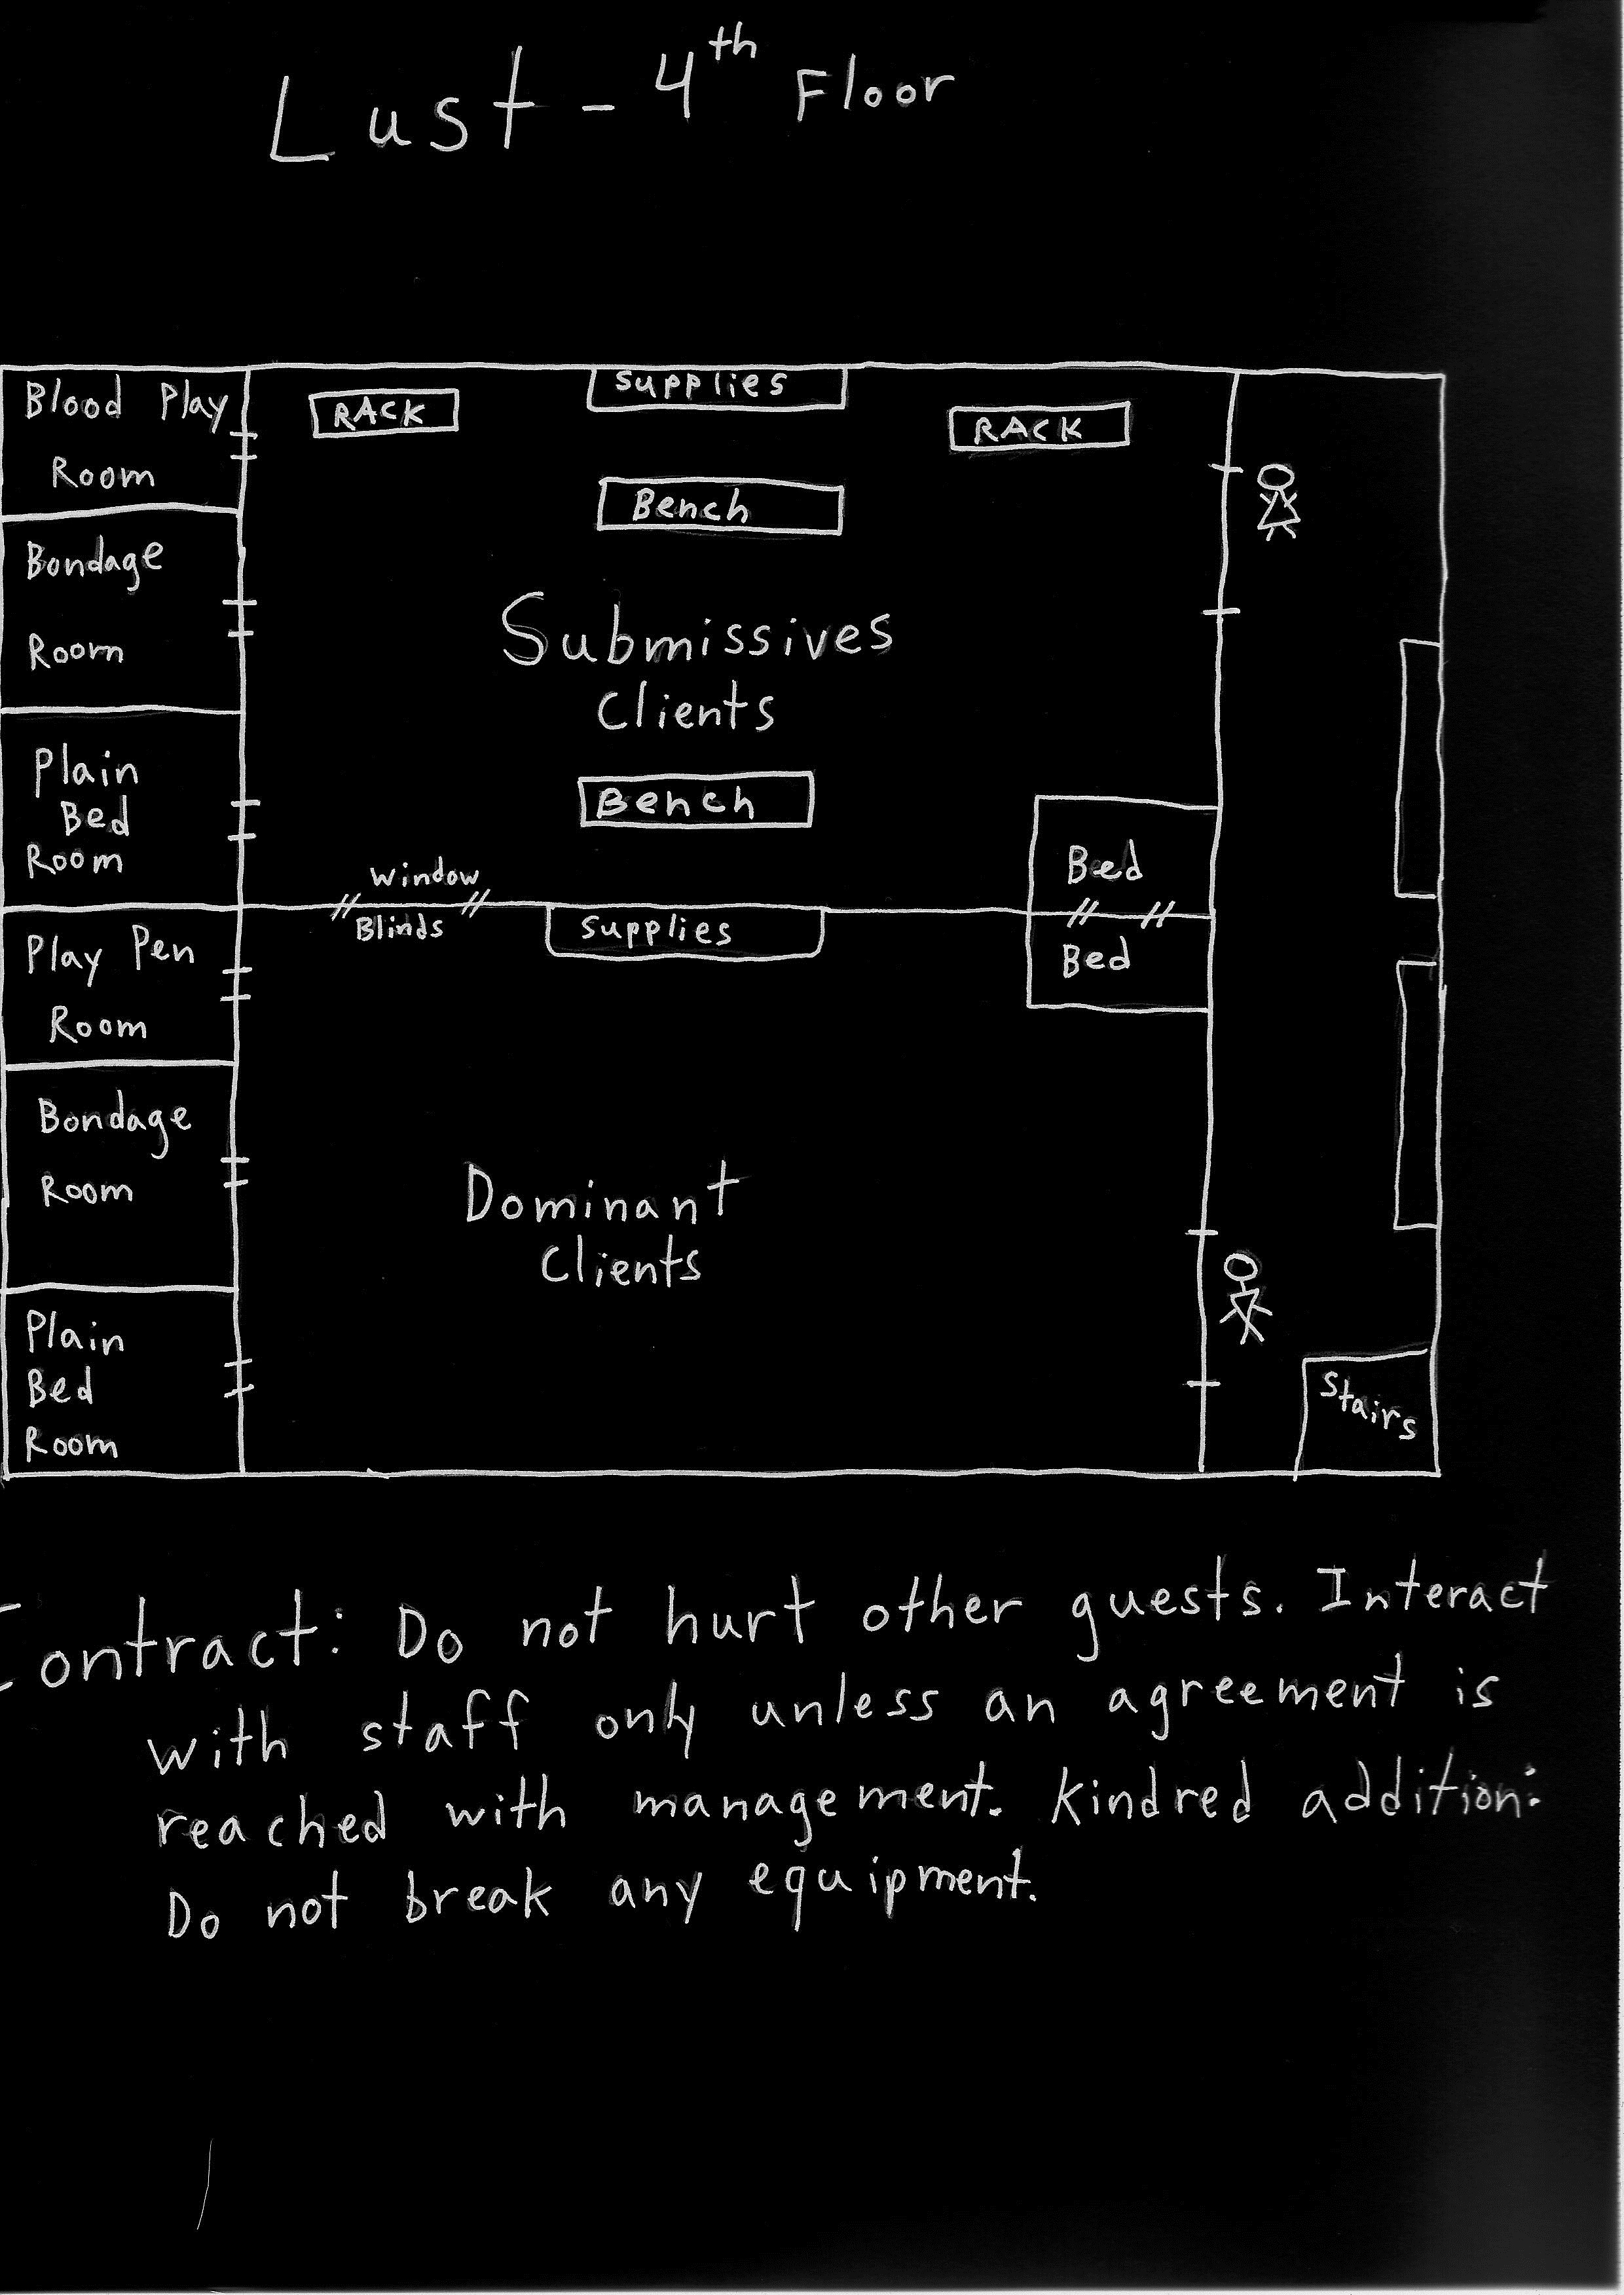 Lust - 4th Floor
Blood Play
Room
RACK
Supplies
RACK
Bench
Bondage
Room
Submissives
Clients
Plain
Bed
Room
Bench
Window
Blinds
Supplies
Bed
Bed
Play Pen
Room
Bondage
Room
Dominant
Clients
Plain
Bed
Room
Stairs
Contract: Do not hurt other guests. Interact
with staff only unless an agreement is
reached with management. Kindred addition:
Do not break any equipment.